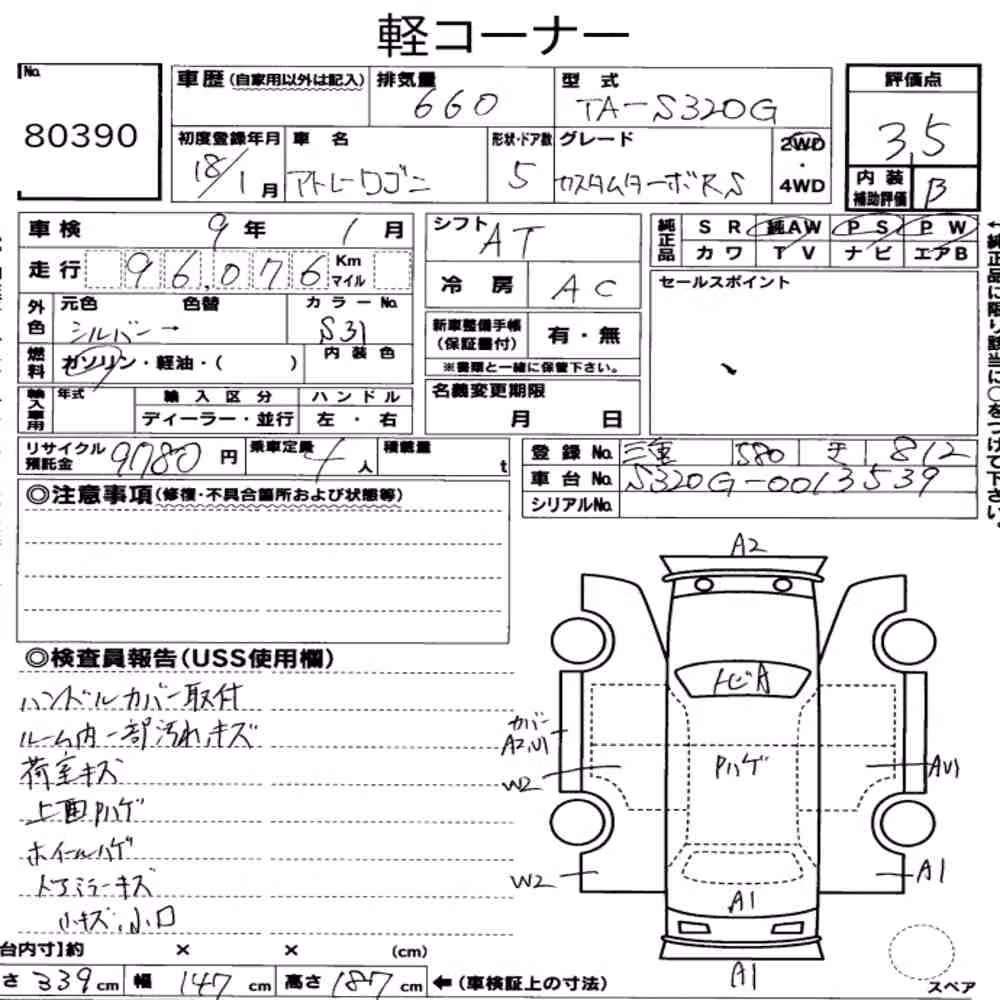 軽コーナー
No.
80390
車歴(自家用以外は記入) 排気量 660 型式 TA-S320G
評価点 3.5
初度登録年月 18/1月 車名 アトレーワゴン 形状・ドア数 5 グレード カスタムターボRS 2WD・4WD
内装補助評価 B
車検 9年 1月
走行 96,076 Km マイル
外色 元色 シルバー→ 色替 カラーNo. S31
燃料 ガソリン・軽油・( ) 内装色
輸入車用 年式 輸入区分 ディーラー・並行 ハンドル 左・右
シフト AT
冷房 AC
新車整備手帳(保証書付) 有・無
※書類と一緒に保管下さい。
名義変更期限 月 日
純正品 SR 純AW PS PW
カワ TV ナビ エアB
セールスポイント
←純正品に限り該当に○をつけて下さい。
リサイクル預託金 9780円 乗車定量 4人 積載量 t
登録No. 三重 580 812
車台No. S320G-0013539
シリアルNo.
◎注意事項(修復・不具合箇所および状態等)
◎検査員報告(USS使用欄)
ハンドルカバー取付
ルーム内一部汚れ、キズ
荷室キズ
上面Pハゲ
ホイールハゲ
ミラーキズ
小キズ、小凹
A2
トビA
カバー
A2,U1
W2
Pハゲ
AU1
W2
A1
A1
A1
スペア
台内寸】約 × × (cm)
さ 339cm 幅 147cm 高さ 187cm ←(車検証上の寸法)